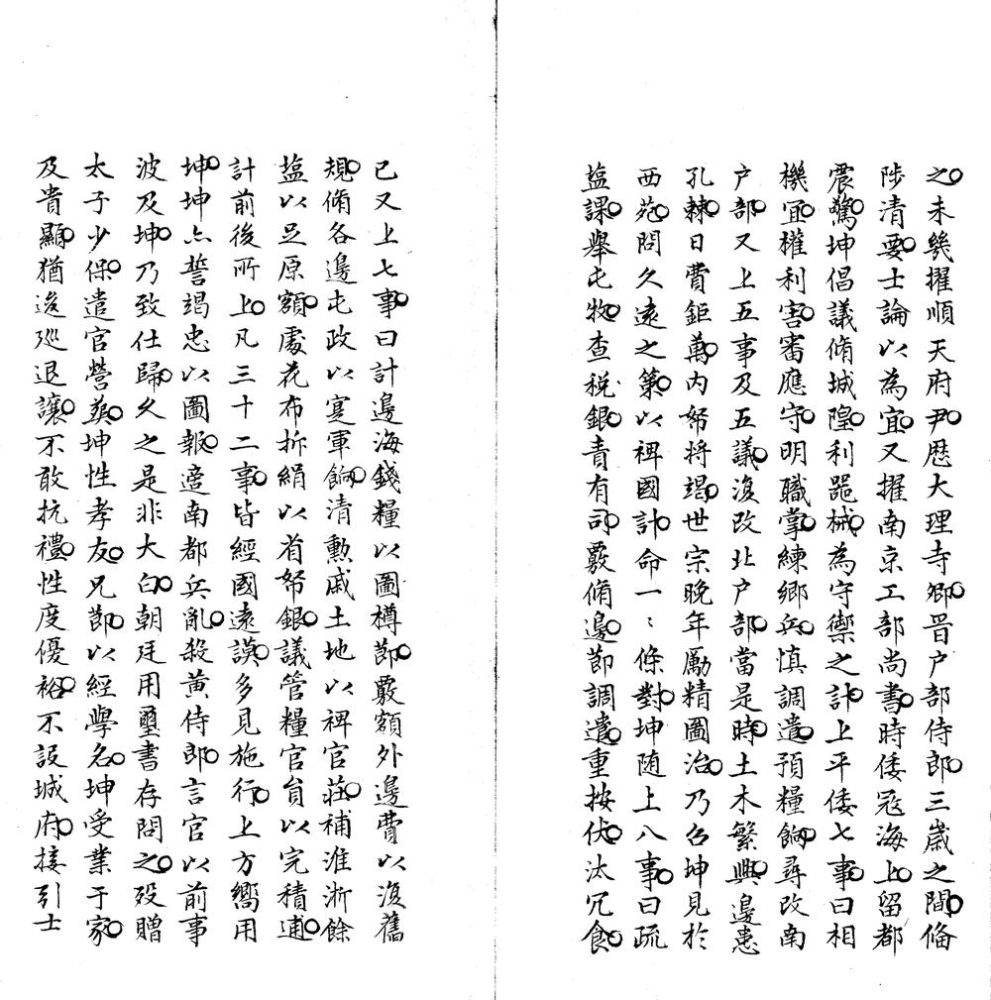 之。未幾擢順天府尹。歴大理寺卿。晉户部侍郎。三歲之間。俻
陟清要。士論以為宜。又擢南京工部尚書。時倭寇海上。留都
震驚。坤倡議脩城隍。利噐械。為守禦之計。上平倭七事。曰相
機宜。權利害。審應守。明職掌。練鄉兵。慎調遣。預糧餉。尋改南
户部。又上五事及五議。復改北户部。當是時。土木繁興。邊患
孔棘。日費鉅萬。内帑將竭。世宗晚年勵精圖治。乃召坤見於
西苑。問久遠之策。以裨國計。命一〻條對。坤随上八事。曰疏
塩課。舉屯牧。查税銀。責有司。覈脩邊。節調遣。重按伏。汰冗食。
已又上七事。曰計邊海錢糧以圖樽節。覈額外邊費以復舊
規。脩各邊屯政以寔軍餉。清勲戚土地以裨官莊。補淮浙餘
塩以足原額。處花布折絹以省帑銀。議管糧官員以完積逋。
計前後所上。凡三十二事。皆經國遠謨。多見施行。上方嚮用
坤。坤亦誓竭忠以圖報。適南都兵亂。殺黄侍郎。言官以前事
波及坤。乃致仕歸。久之是非大白。朝廷用璽書存問之。殁贈
太子少保。遣官營葬。坤性孝友。兄節以經學名。坤受業于家。
及貴顯。猶逡巡退讓。不敢抗禮。性度優裕。不設城府。接引士